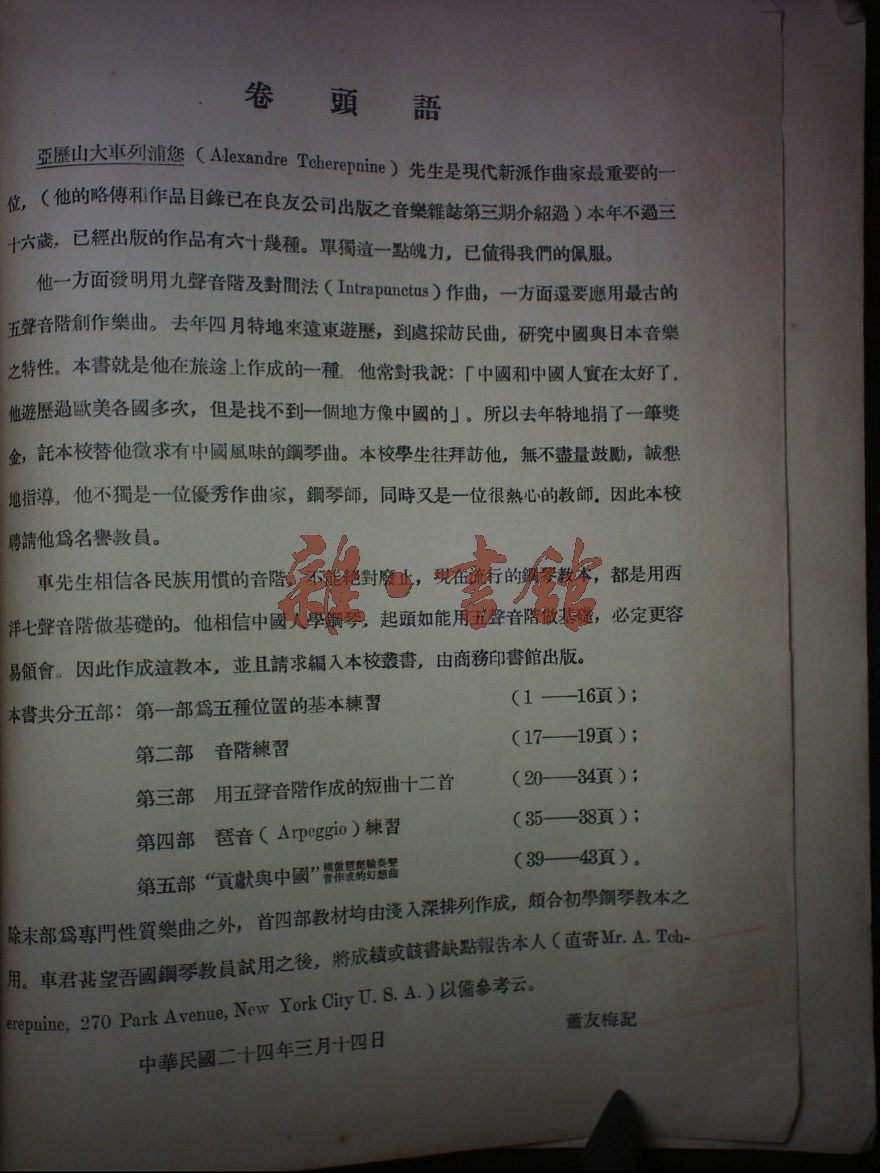 卷頭語
亞歷山大車列浦您（Alexandre Tcherepnine）先生是現代新派作曲家最重要的一
位，（他的略傳和作品目錄已在良友公司出版之音樂雜誌第三期介紹過）本年不過三
十六歲，已經出版的作品有六十幾種。單獨這一點魄力，已值得我們的佩服。
他一方面發明用九聲音階及對間法（Intrapunctus）作曲，一方面還要應用最古的
五聲音階創作樂曲。去年四月特地來遠東遊歷，到處採訪民曲，研究中國與日本音樂
之特性。本書就是他在旅途上作成的一種。他常對我說：「中國和中國人實在太好了．
他遊歷過歐美各國多次，但是找不到一個地方像中國的」。所以去年特地捐了一筆獎
金，託本校替他徵求有中國風味的鋼琴曲。本校學生往拜訪他，無不盡量鼓勵，誠懇
地指導。他不獨是一位優秀作曲家，鋼琴師，同時又是一位很熱心的教師．因此本校
聘請他爲名譽教員。
車先生相信各民族用慣的音階，不能絕對廢止，現在流行的鋼琴教本，都是用西
洋七聲音階做基礎的。他相信中國人學鋼琴，起頭如能用五聲音階做基礎，必定更容
易領會。因此作成這教本，並且請求編入本校叢書，由商務印書館出版。
本書共分五部：第一部爲五種位置的基本練習（1——16頁）；
第二部 音階練習（17——19頁）；
第三部 用五聲音階作成的短曲十二首（20——34頁）；
第四部 琶音（Arpeggio）練習（35——38頁）；
第五部 “貢獻與中國”模倣琵琶輪奏聲音作成的幻想曲（39——43頁）。
除末部爲專門性質樂曲之外，首四部教材均由淺入深排列作成，頗合初學鋼琴教本之
用。車君甚望吾國鋼琴教員試用之後，將成績或該書缺點報告本人（直寄Mr. A. Tch-
erepnine, 270 Park Avenue, New York City U. S. A.）以備參考云。
蕭友梅記
中華民國二十四年三月十四日
雜·書館